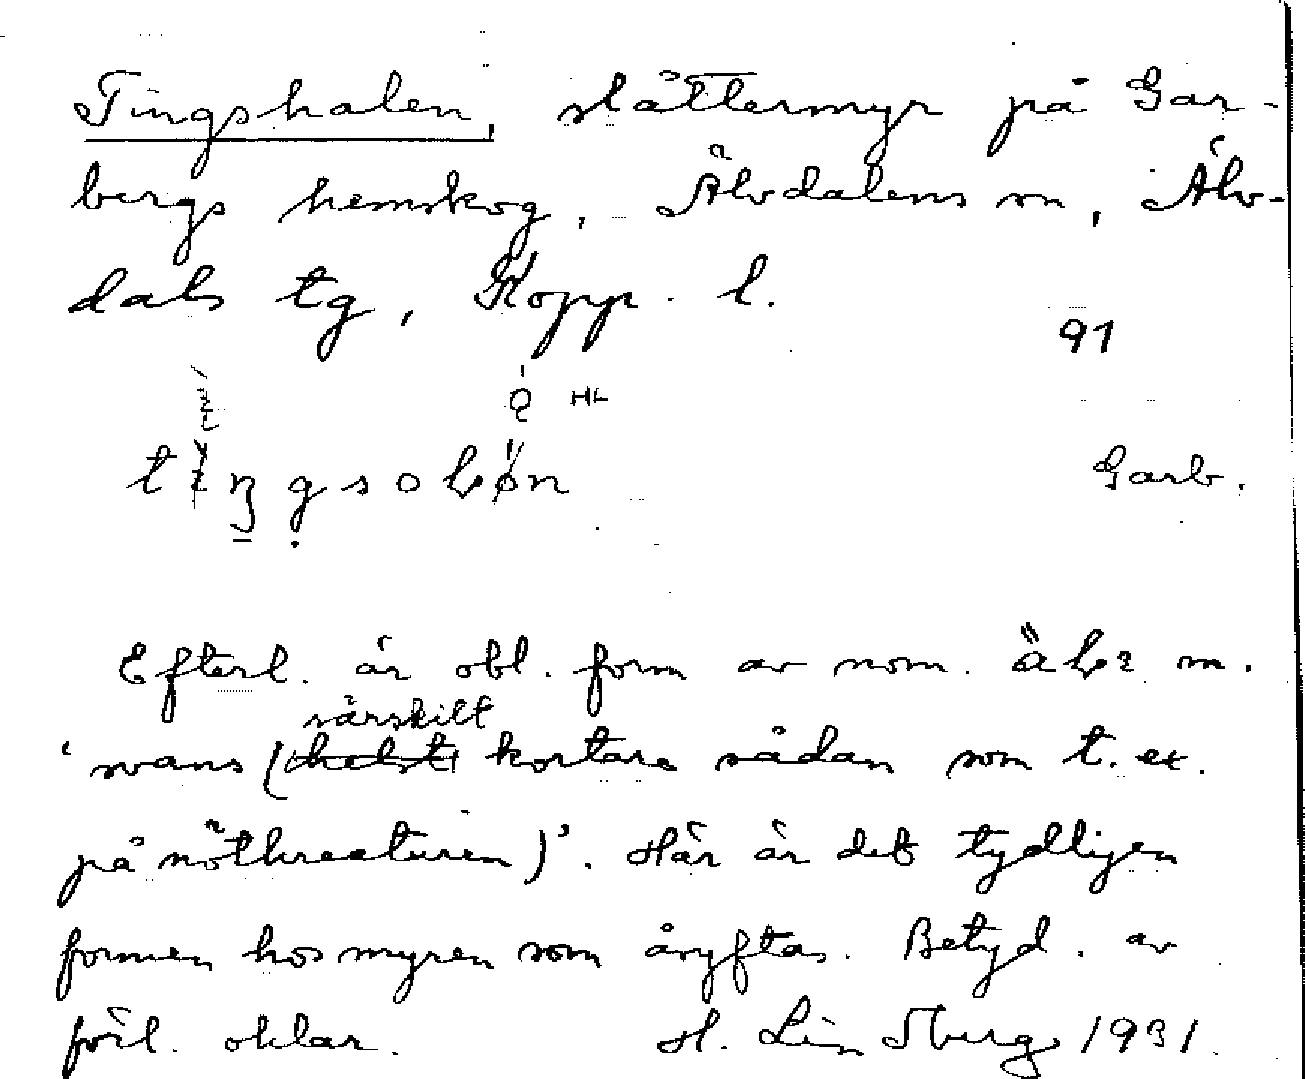 Tingshalen, slåttermyr på Gar-
bergs hemskog, Älvdalens sn, Älv-
dals tg, Kopp. l.
91
HL
Garb.
Efterl. är obl. form av nom. m.
särskilt
'svans (helst kortare sådan som t. ex.
på nötkreaturen)'. Här är det tydligen
formen hos myren som åsyftas. Betyd. av
förl. oklar. H. Lindberg 1931.